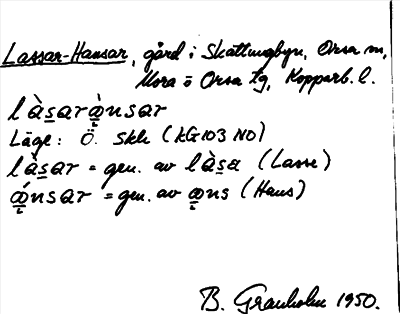 Lassar-Hansar, gård i Skattungbyn, Orsa sn,
Mora o Orsa tg, Kopparb. l.
lɑ̀s̲ɑrɑ̀̀nsɑr
Läge: Ö. Skbn (KG103 NO)
lɑ̀s̲ɑr = gen. av lɑ̀s̲a (Lasse)
ɑ́nsɑr = gen. av ɑns (Hans)
B. Granholm 1950.